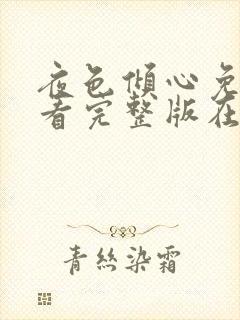 夜色傾心免
看完整版在
青絲染霜